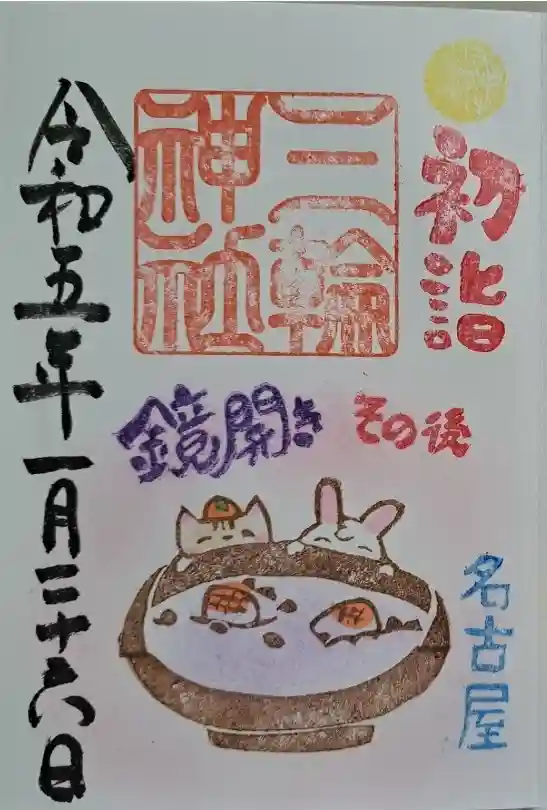 初詣
三輪
神社
令和五年一月二十六日
鏡開き その後
名古屋